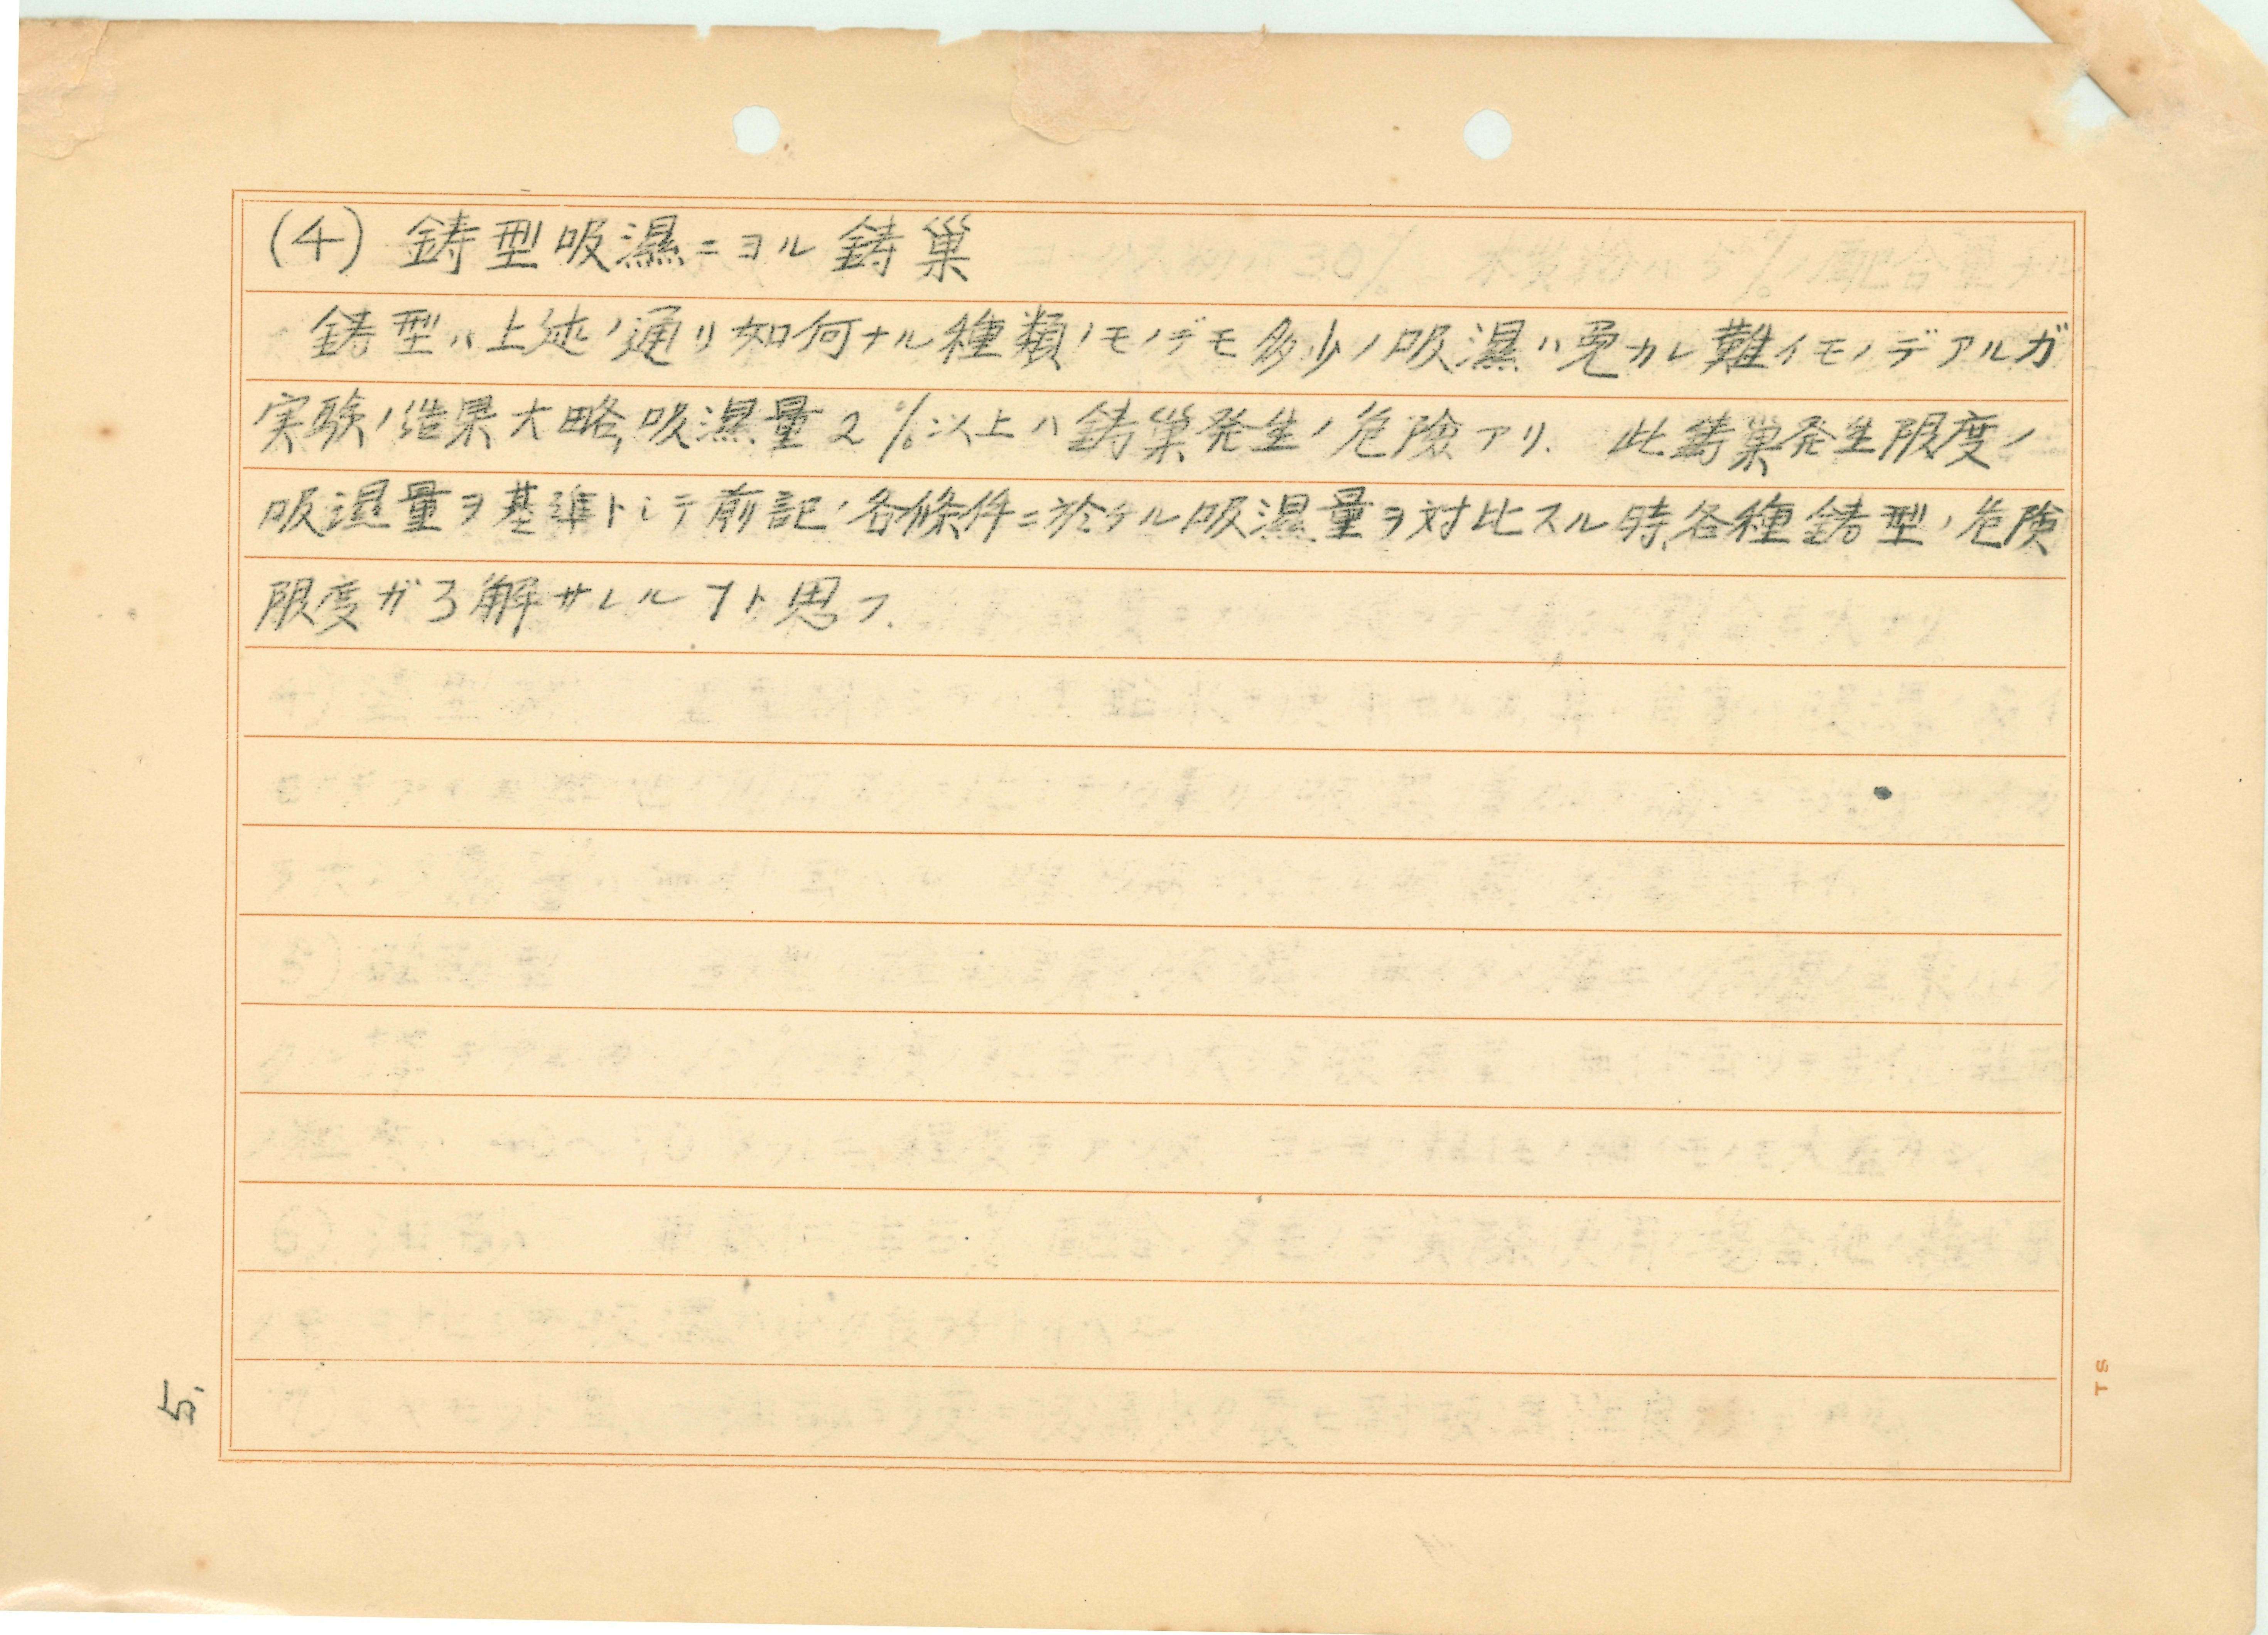 (4) 鋳型吸濕ニヨル鋳巣
鋳型ハ上述ノ通リ如何ナル種類ノモノデモ多少ノ吸濕ハ免カレ難イモノデアルガ
実験ノ結果大略吸濕量2%以上ハ鋳巣発生ノ危險アリ. 此鋳巣発生限度ノ
吸湿量ヲ基準トシテ前記ノ各條件ニ於ケル吸湿量ヲ対比スル時各種鋳型ノ危険
限度ガ了解サレルヿト思フ.
5.
TS